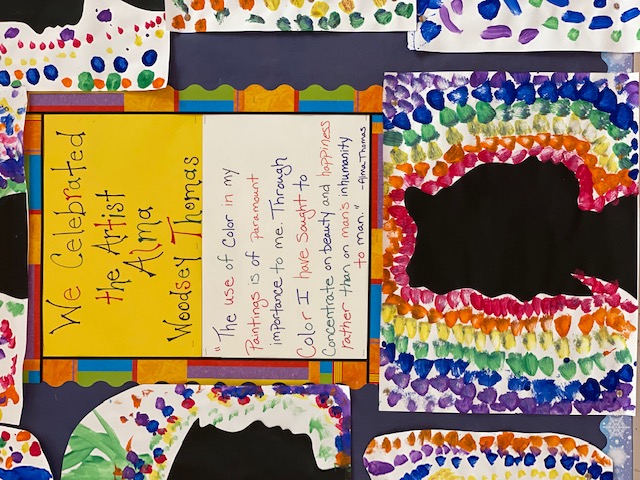 We Celebrated
the Artist
Alma
Woodsey Thomas
"The use of Color in my
Paintings is of paramount
importance to me. Through
Color I have Sought to
Concentrate on beauty and happiness
rather than on man's inhumanity
to man." -Alma Thomas